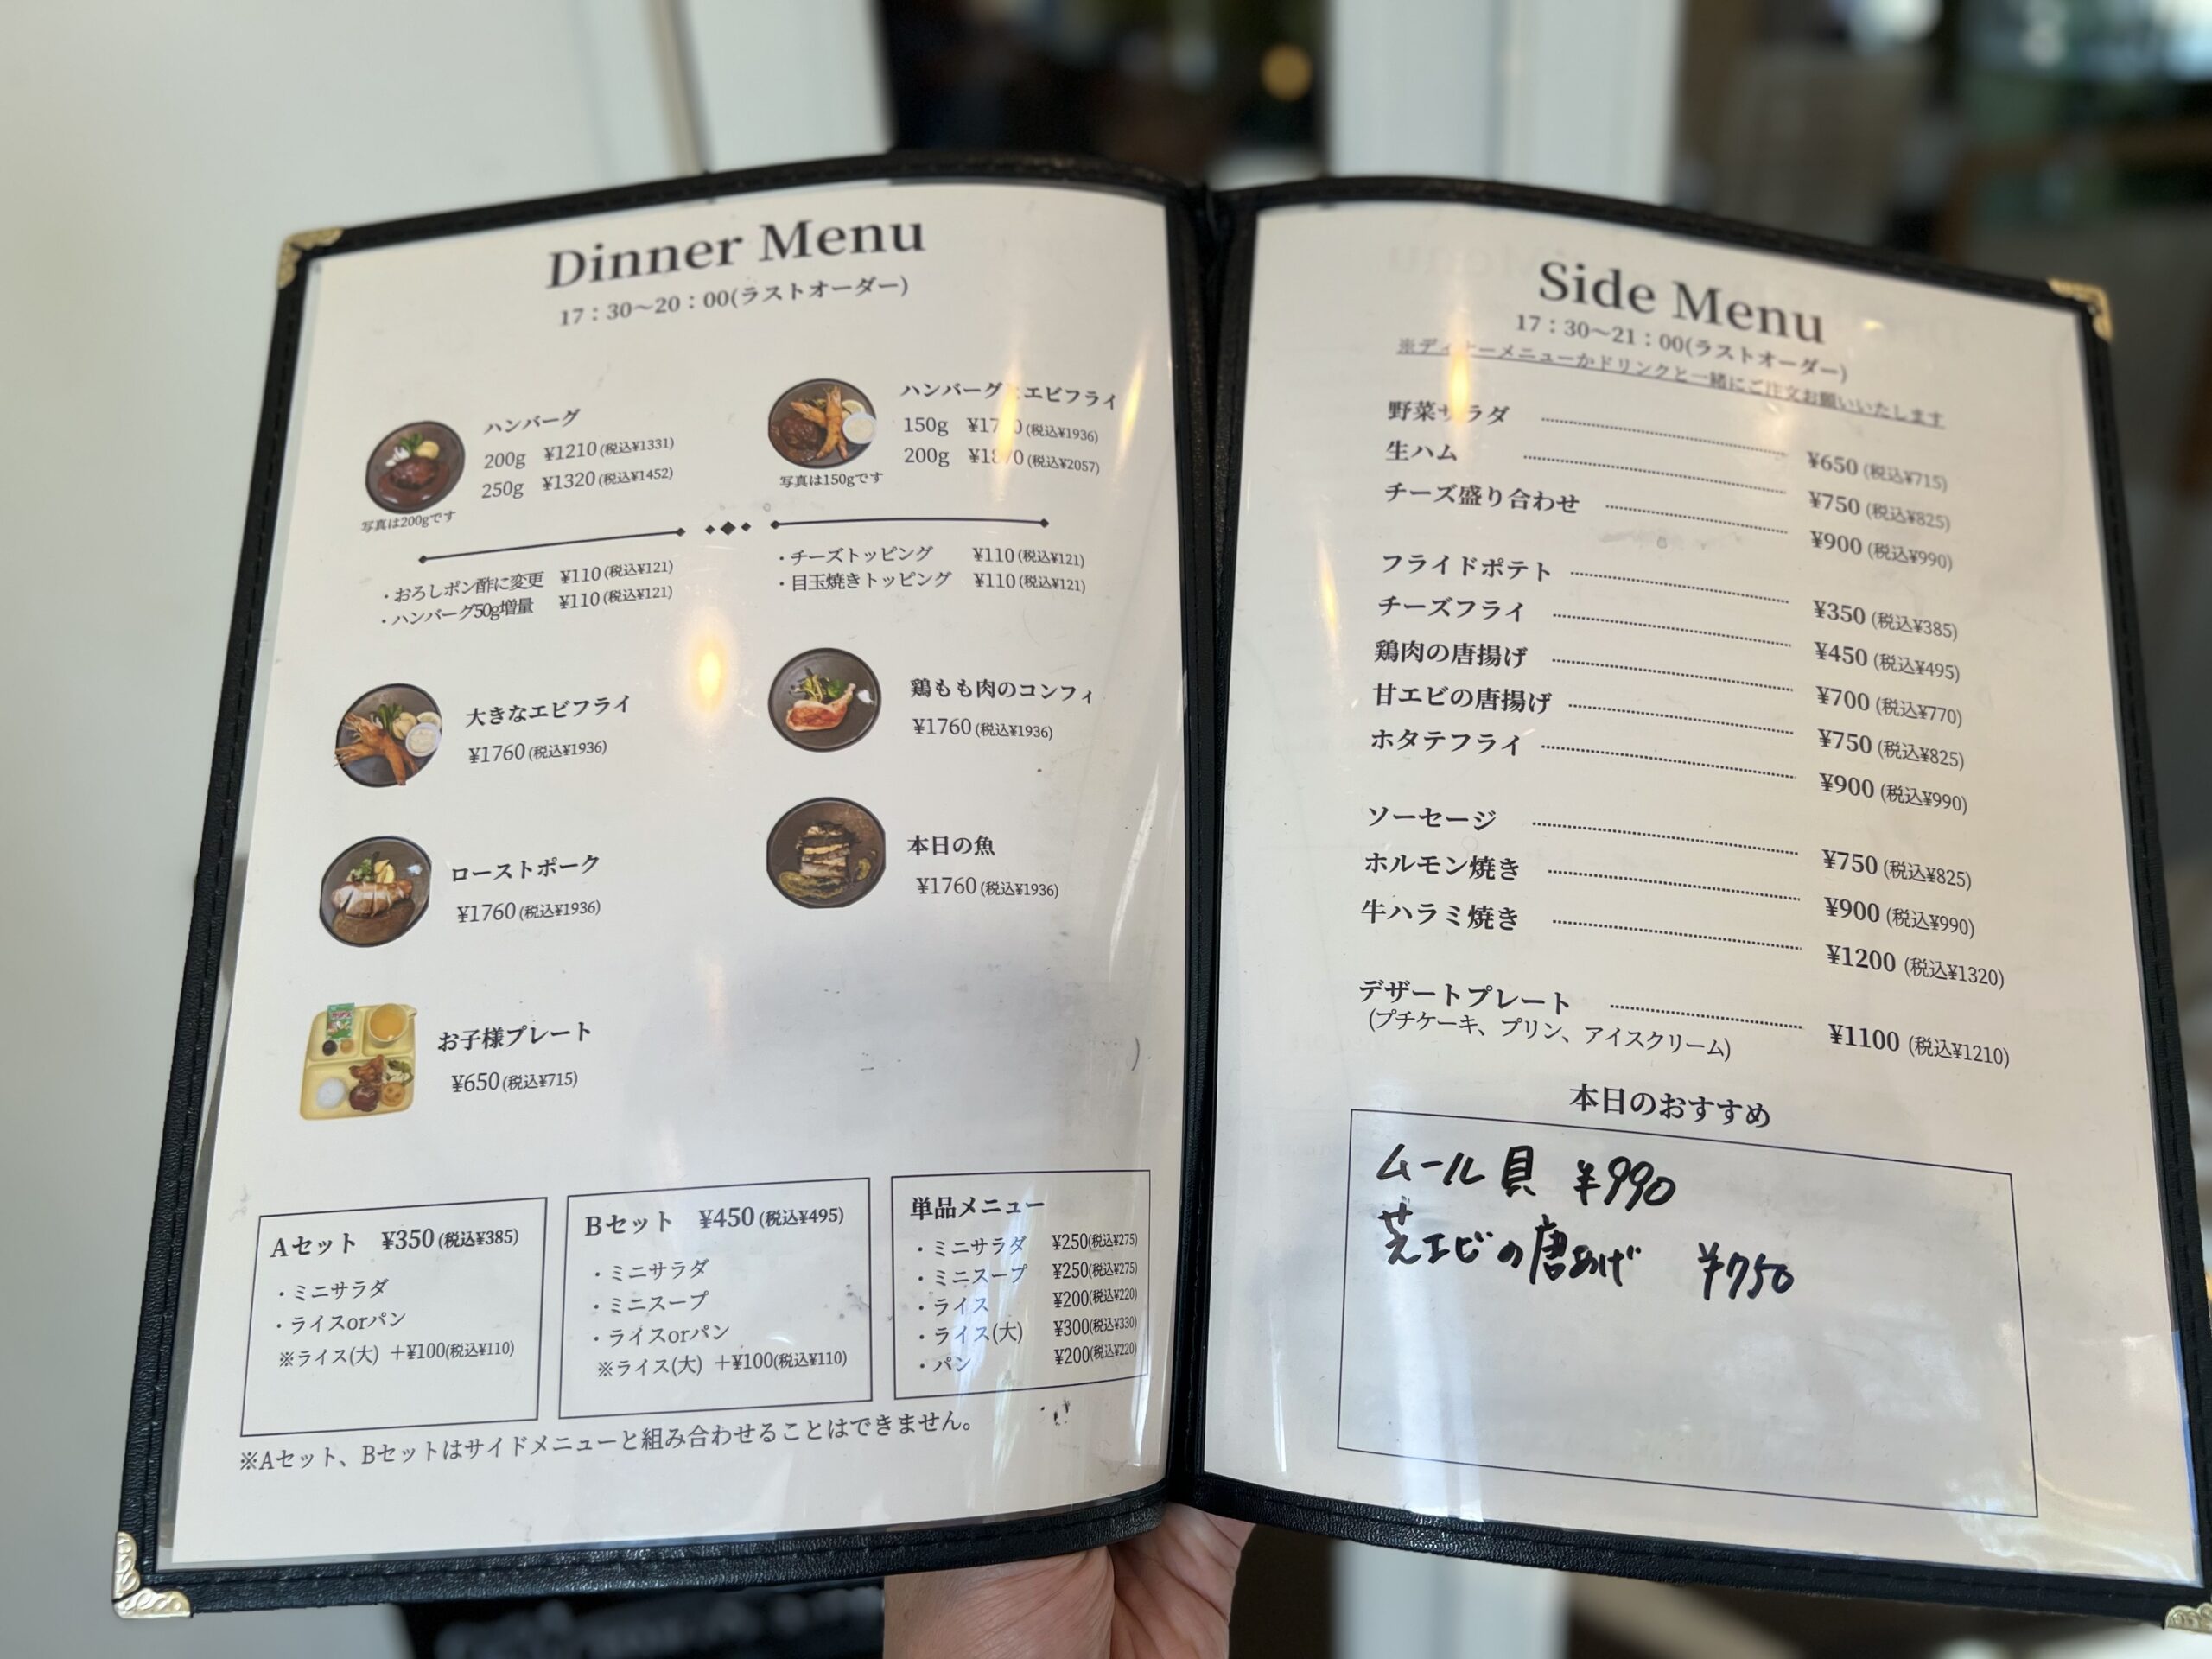 Dinner Menu
17：30～20：00(ラストオーダー)
ハンバーグ
200g ¥1210(税込¥1331)
250g ¥1320(税込¥1452)
写真は200gです
ハンバーグとエビフライ
150g (税込¥1936)
200g (税込¥2057)
写真は150gです
・おろしポン酢に変更 ¥110(税込¥121)
・ハンバーグ50g増量 ¥110(税込¥121)
・チーズトッピング ¥110(税込¥121)
・目玉焼きトッピング ¥110(税込¥121)
大きなエビフライ
¥1760(税込¥1936)
鶏もも肉のコンフィ
¥1760(税込¥1936)
ローストポーク
¥1760(税込¥1936)
本日の魚
¥1760(税込¥1936)
お子様プレート
¥650(税込¥715)
Aセット ¥350(税込¥385)
・ミニサラダ
・ライスorパン
※ライス(大) +¥100(税込¥110)
Bセット ¥450(税込¥495)
・ミニサラダ
・ミニスープ
・ライスorパン
※ライス(大) +¥100(税込¥110)
単品メニュー
・ミニサラダ ¥250(税込¥275)
・ミニスープ ¥250(税込¥275)
・ライス ¥200(税込¥220)
・ライス(大) ¥300(税込¥330)
・パン ¥200(税込¥220)
※Aセット、Bセットはサイドメニューと組み合わせることはできません。
Side Menu
17：30～21：00(ラストオーダー)
※ディナーメニューかドリンクと一緒にご注文お願いいたします
野菜サラダ ¥650 (税込¥715)
生ハム ¥750 (税込¥825)
チーズ盛り合わせ ¥900 (税込¥990)
フライドポテト ¥350 (税込¥385)
チーズフライ ¥450 (税込¥495)
鶏肉の唐揚げ ¥700 (税込¥770)
甘エビの唐揚げ ¥750 (税込¥825)
ホタテフライ ¥900 (税込¥990)
ソーセージ ¥750 (税込¥825)
ホルモン焼き ¥900 (税込¥990)
牛ハラミ焼き ¥1200 (税込¥1320)
デザートプレート ¥1100 (税込¥1210)
(プチケーキ、プリン、アイスクリーム)
本日のおすすめ
ムール貝 ¥990
芝エビの唐あげ ¥750